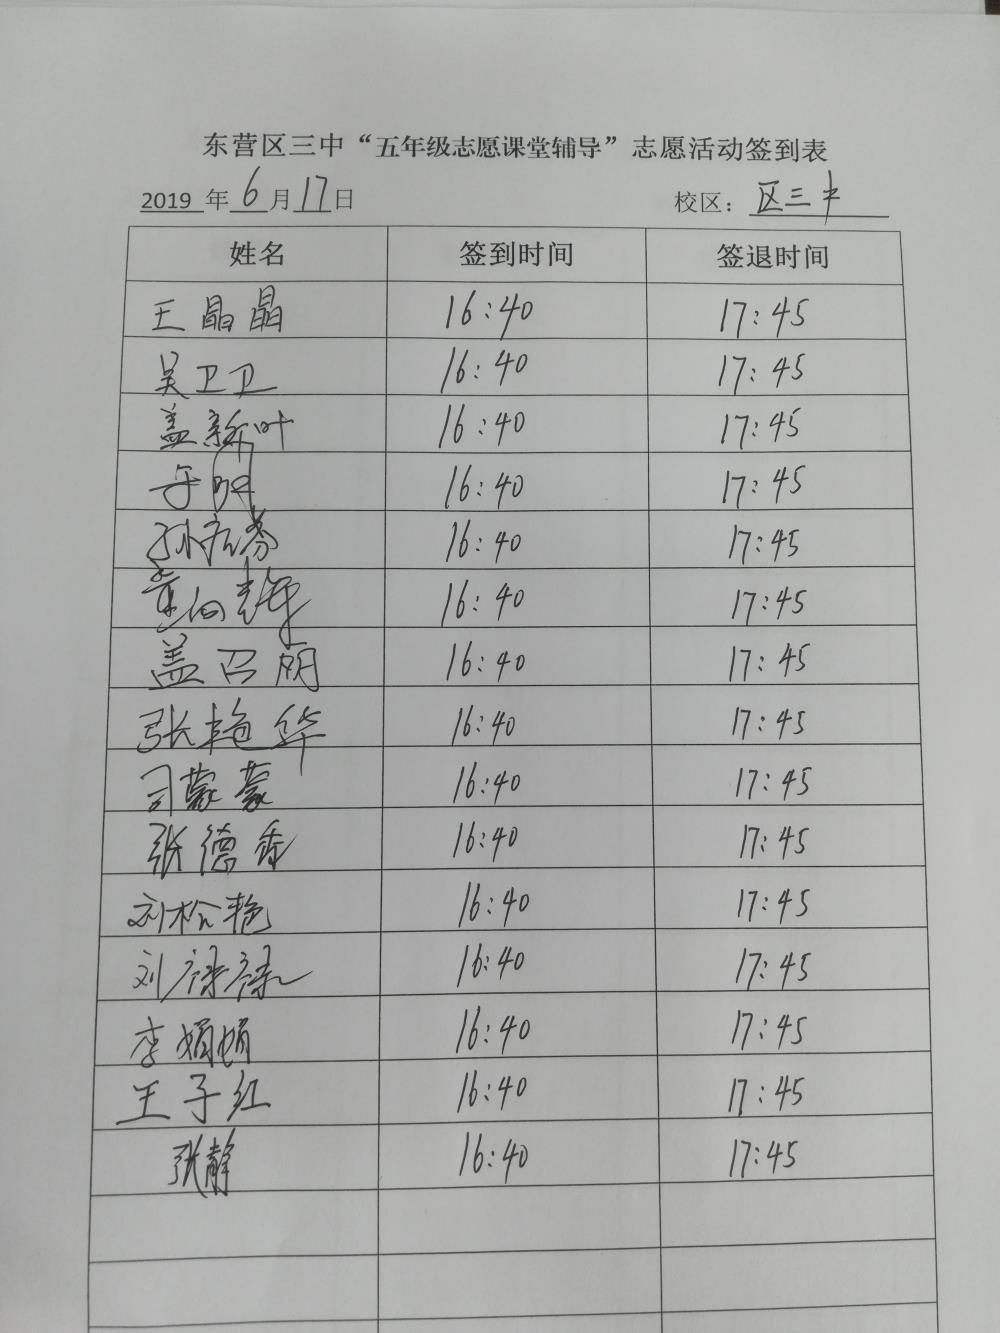 东营区三中“五年级志愿课堂辅导”志愿活动签到表
2019 年 6 月 17 日 校区： 区三中
姓名 签到时间 签退时间
王晶晶 16:40 17:45
吴卫卫 16:40 17:45
盖新叶 16:40 17:45
16:40 17:45
孙 16:40 17:45
16:40 17:45
盖召明 16:40 17:45
张艳华 16:40 17:45
司蒙蒙 16:40 17:45
张德香 16:40 17:45
刘松艳 16:40 17:45
刘禄禄 16:40 17:45
李娟娟 16:40 17:45
王子红 16:40 17:45
张静 16:40 17:45